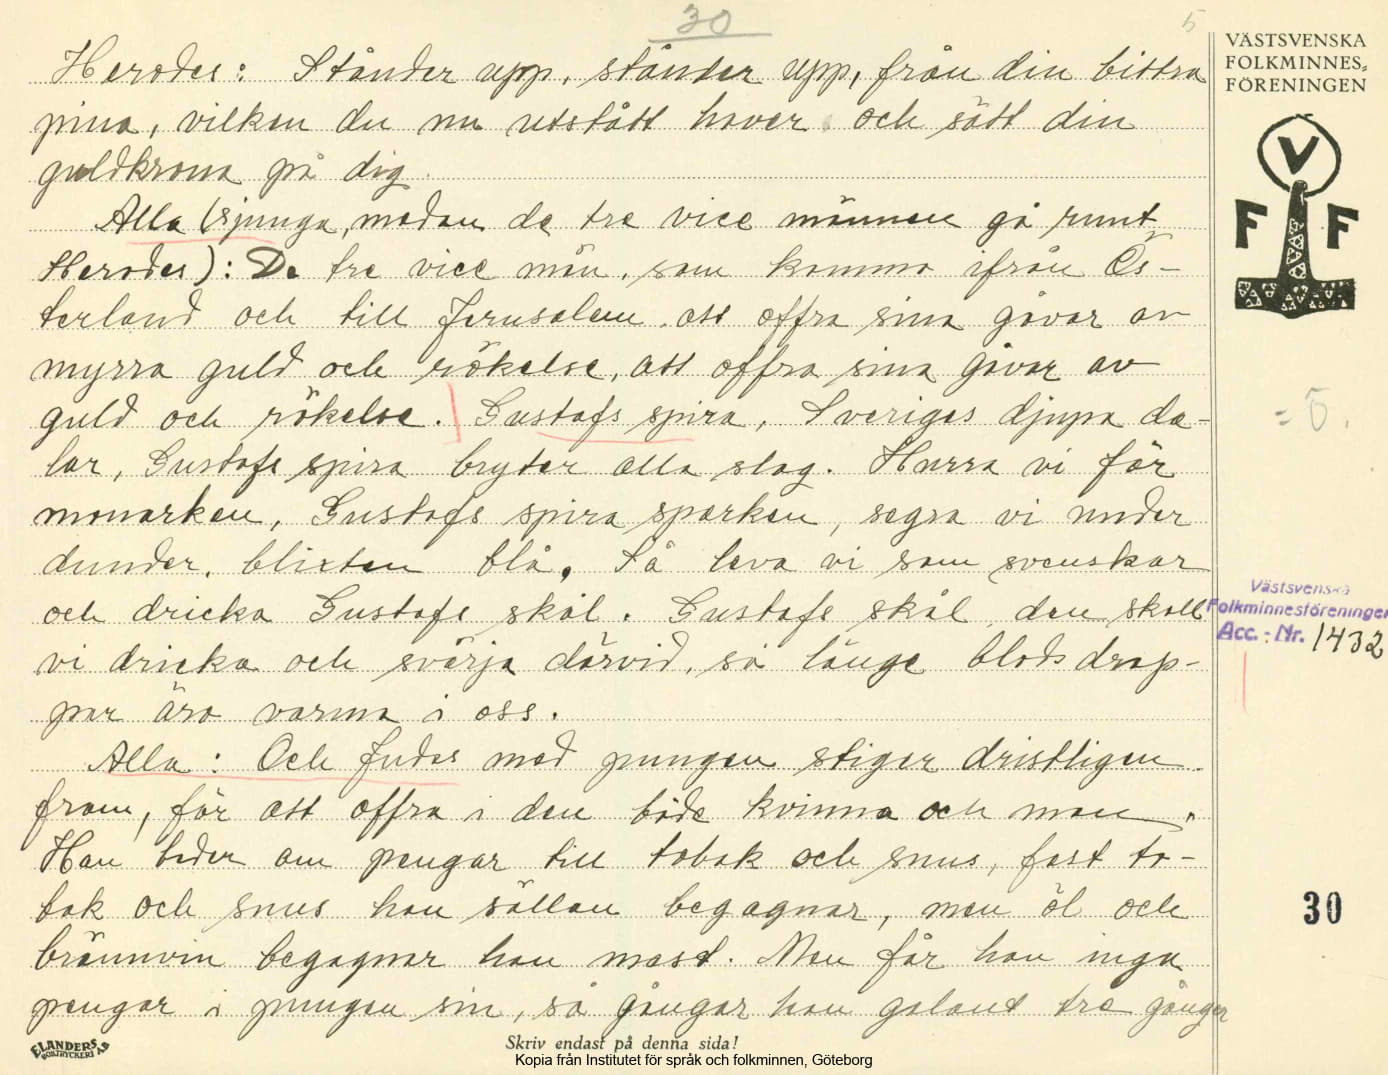 30
5
Herodes: Stånder upp, stånder upp, från din bittra
pina, vilken du nu utstått haver och sått din
guldkrona på dig.
Alla (sjunga, medan de tre vice männen gå runt
Herodes): De tre vice män, som komma ifrån Ös-
terland och till Jerusalem, att offra sina gåvor av
myrra guld och rökelse, att offra sina gåvor av
guld och rökelse. Gustafs spira, Sveriges djupa da-
lar, Gustafs spira bryter alla slag. Hurra vi för
monarken, Gustafs spira sparken, segra vi under
dunder, blixten blå. Så leva vi som svenskar
och dricka Gustafs skål. Gustafs skål, den skall
vi dricka och svärja därvid, så länge blods drop-
par äro varma i oss.
Alla: Och Judas med pungen stiger dristligen
fram, för att offra i den både kvinna och man.
Han beder om pengar till tobak och snus, fast to-
bak och snus han sällan begagnar, men öl och
brännvin begagnar han mest. Men får han inga
pengar i pungen sin, så gångar han galant tre gånger
VÄSTSVENSKA
FOLKMINNES-
FÖRENINGEN
V
F F
= 5.
Västsvenska
Folkminnesföreningen
Acc. - Nr. 1432
30
ELANDERS
BOKTRYCKERI AB
Skriv endast på denna sida!
Kopia från Institutet för språk och folkminnen, Göteborg